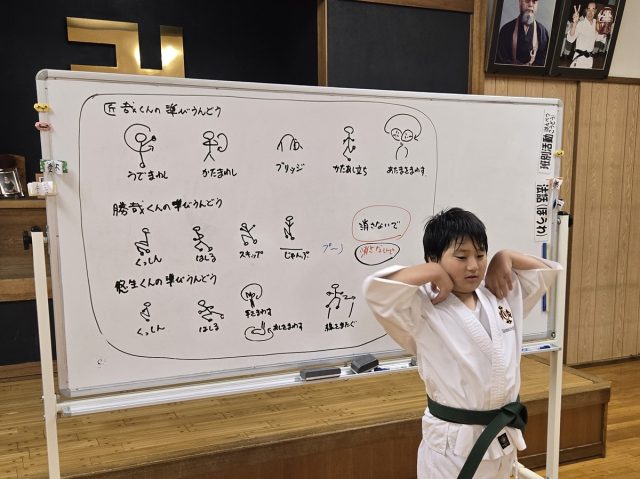 匠哉くんの準びうんどう
うでまわし かたまわし ブリッジ かたあし立ち あたまをまわす
勝哉くんの準びうんどう
消さないで
くっしん はしる スキップ じゃんプ プ〜ノ 消さないで
くっしん はしる 手をまわす あしをまわす 線をまたぐ
法話(ほうわ)